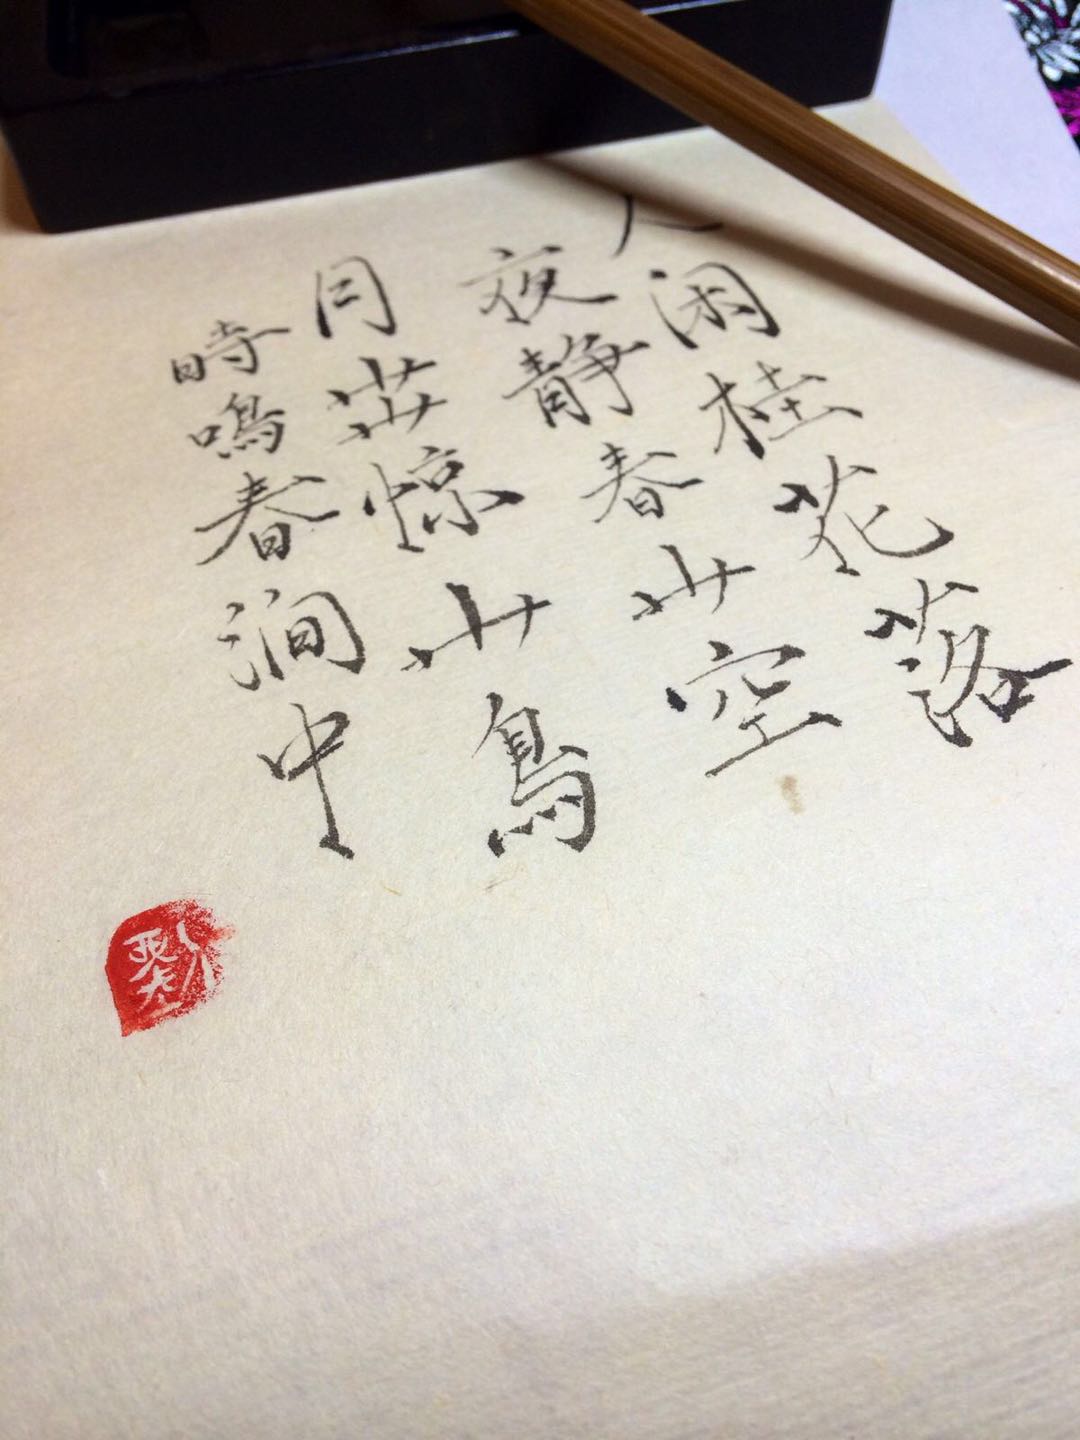 人闲桂花落
夜静春山空
月出惊山鳥
時鳴春涧中